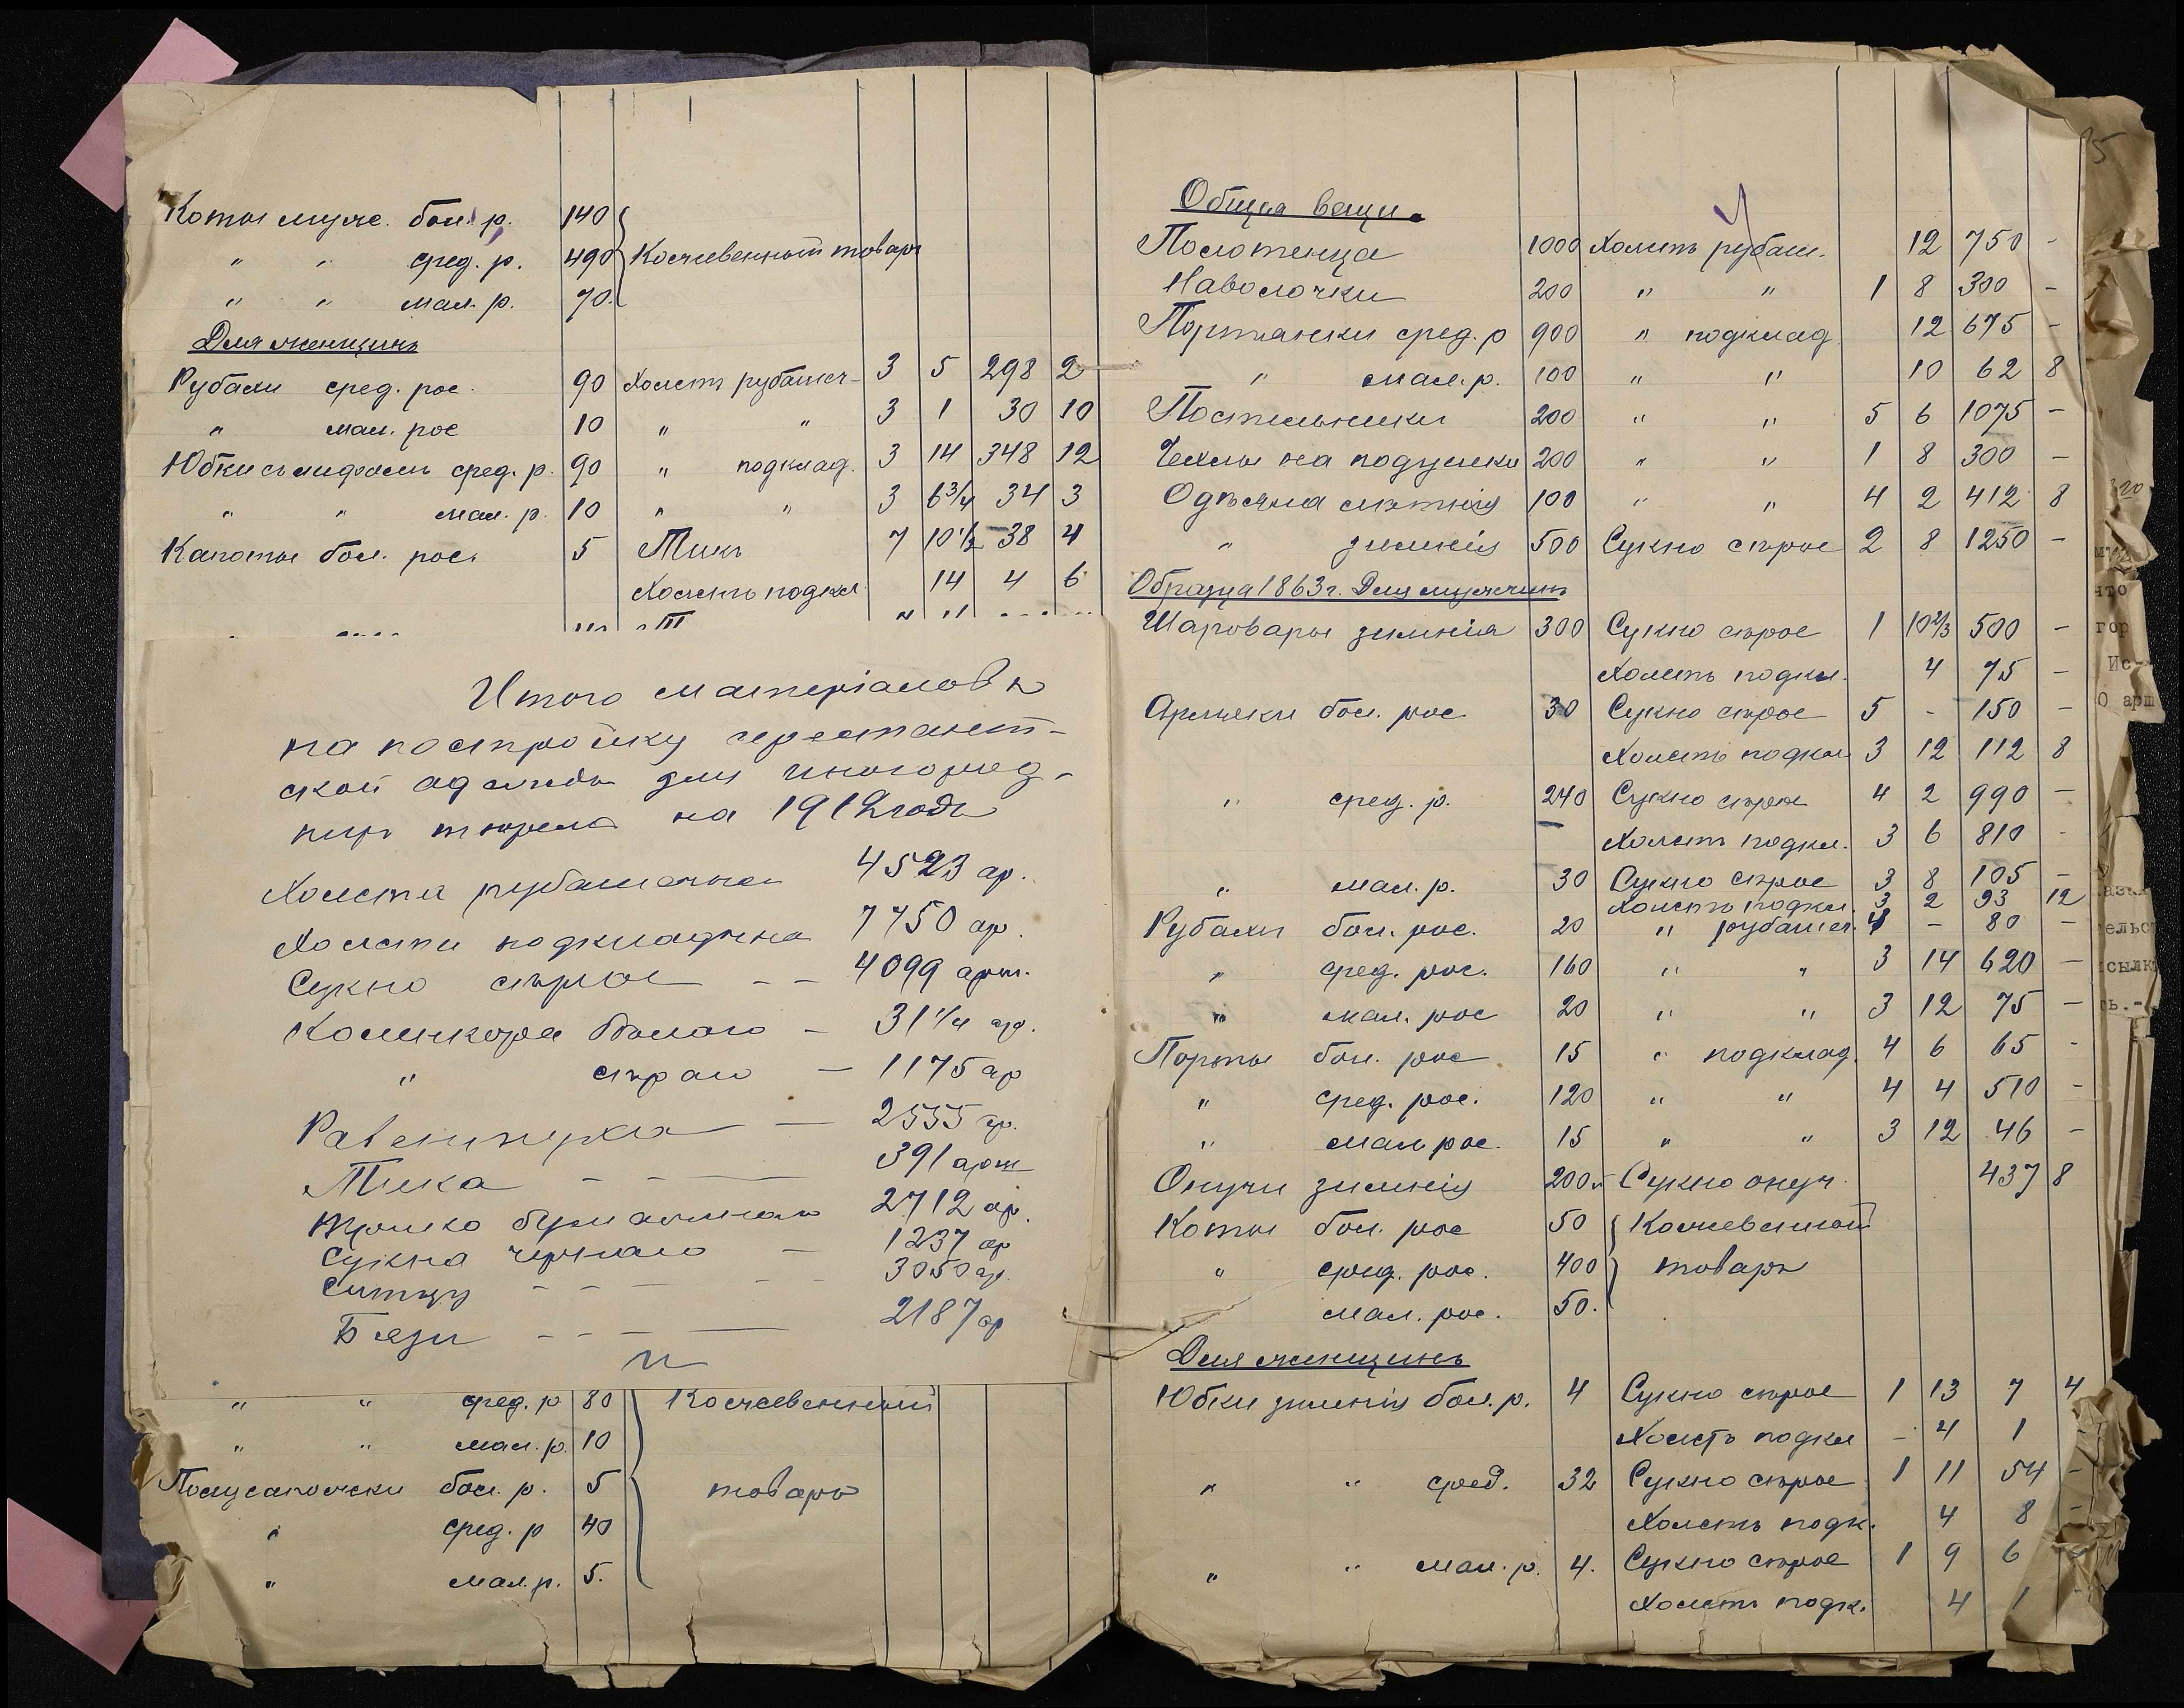 Коты мужс. бол. р. 140
" " сред. р. 490 Кожевенный товаръ
" " мал. р. 70
Для женщинъ
Рубахи сред. рос. 90 Холстъ рубашеч. 3 5 298 2
" мал. рос 10 " " 3 1 30 10
Юбки съ лифомъ сред. р. 90 " подклад. 3 14 348 12
" " мал. р. 10 " " 3 6 3/4 34 3
Капоты бол. рос. 5 Тикъ 7 10 1/2 38 4
Холстъ подкл. 14 4 6
Итого матеріаловъ
на постройку арестант-
ской одежды для иногород-
нихъ тюремъ на 1912 годъ
Холста рубашечна 4523 ар.
Холста подкладочна 7750 ар.
Сукно сѣрое -- 4099 арш.
Коленкора бѣлаго - 31 1/4 ар.
" сѣраго - 1175 ар
Равентуха - 2555 ар.
Тика - - 391 арш
Трико бумажнаго 2712 ар.
Сукна чернаго - 1237 ар
Ситцу - - - - 3050 ар.
Бязи - - - - 2187 ар
" " сред. р 80 Кожевенный
" " мал. р. 10
Полусапожки бол. р. 5 товаръ
" сред. р 40
" мал. р. 5.
Общія вещи.
Полотенца 1000 Холстъ рубаш. 12 750 -
Наволочки 200 " " 1 8 300 -
Портянки сред. р 900 " подклад. 12 675 -
" мал. р. 100 " " 10 62 8
Постельники 200 " " 5 6 1075 -
Чехлы на подушки 200 " " 1 8 300 -
Одѣяла лѣтнія 100 " " 4 2 412 8
" зимнія 500 Сукно сѣрое 2 8 1250 -
Образца 1863 г. Для мужчинъ
Шаровары зимнія 300 Сукно сѣрое 1 10 2/3 500 -
Холстъ подкл. 4 75 -
Армяки бол. рос 30 Сукно сѣрое 5 - 150 -
Холстъ подкл 3 12 112 8
" сред. р. 240 Сукно сѣрое 4 2 990 -
Холстъ подкл. 3 6 810 -
" мал. р. 30 Сукно сѣрое 3 8 105 -
Холстъ подкл. 3 2 93 12
Рубахи бол. рос. 20 " рубашеч. 4 - 80 -
" сред. рос. 160 " " 3 14 620 -
" мал. рос 20 " " 3 12 75 -
Порты бол. рос 15 " подклад. 4 6 65 -
" сред. рос. 120 " " 4 4 510 -
" мал. рос. 15 " " 3 12 46 -
Онучи зимнія 200 Сукно онуч. 437 8
Коты бол. рос 50 Кожевенный
" сред. рос. 400 товаръ
мал. рос. 50.
Для женщинъ
Юбки зимнія бол. р. 4 Сукно сѣрое 1 13 7 4
Холстъ подкл - 4 1
" " сред. 32 Сукно сѣрое 1 11 54 -
Холстъ подк. 4 8 -
" " мал. р. 4. Сукно сѣрое 1 9 6
Холстъ подк. 4 1